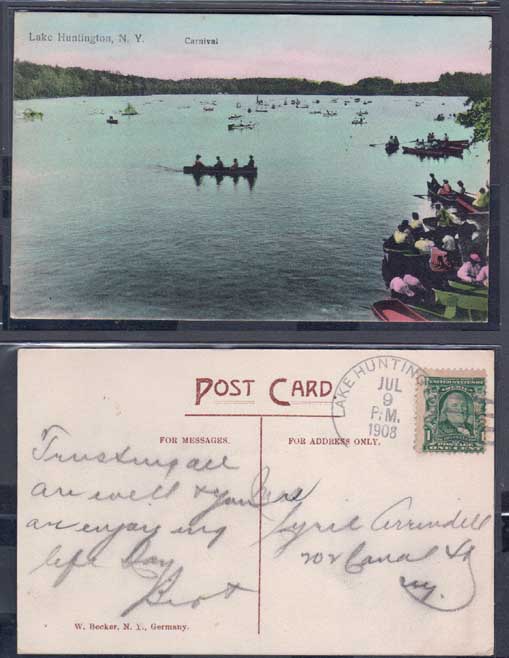 Lake Huntington, N. Y.
Carnival
POST CARD
FOR MESSAGES.
FOR ADDRESS ONLY.
LAKE HUNTING
JUL
9
P.M.
1908
1
ONE CENT
Trusting all
are well & you
are enjoying
life
Bert
Cyril Arrindell
202 Canal St
NY.
W. Becker, N. Y., Germany.